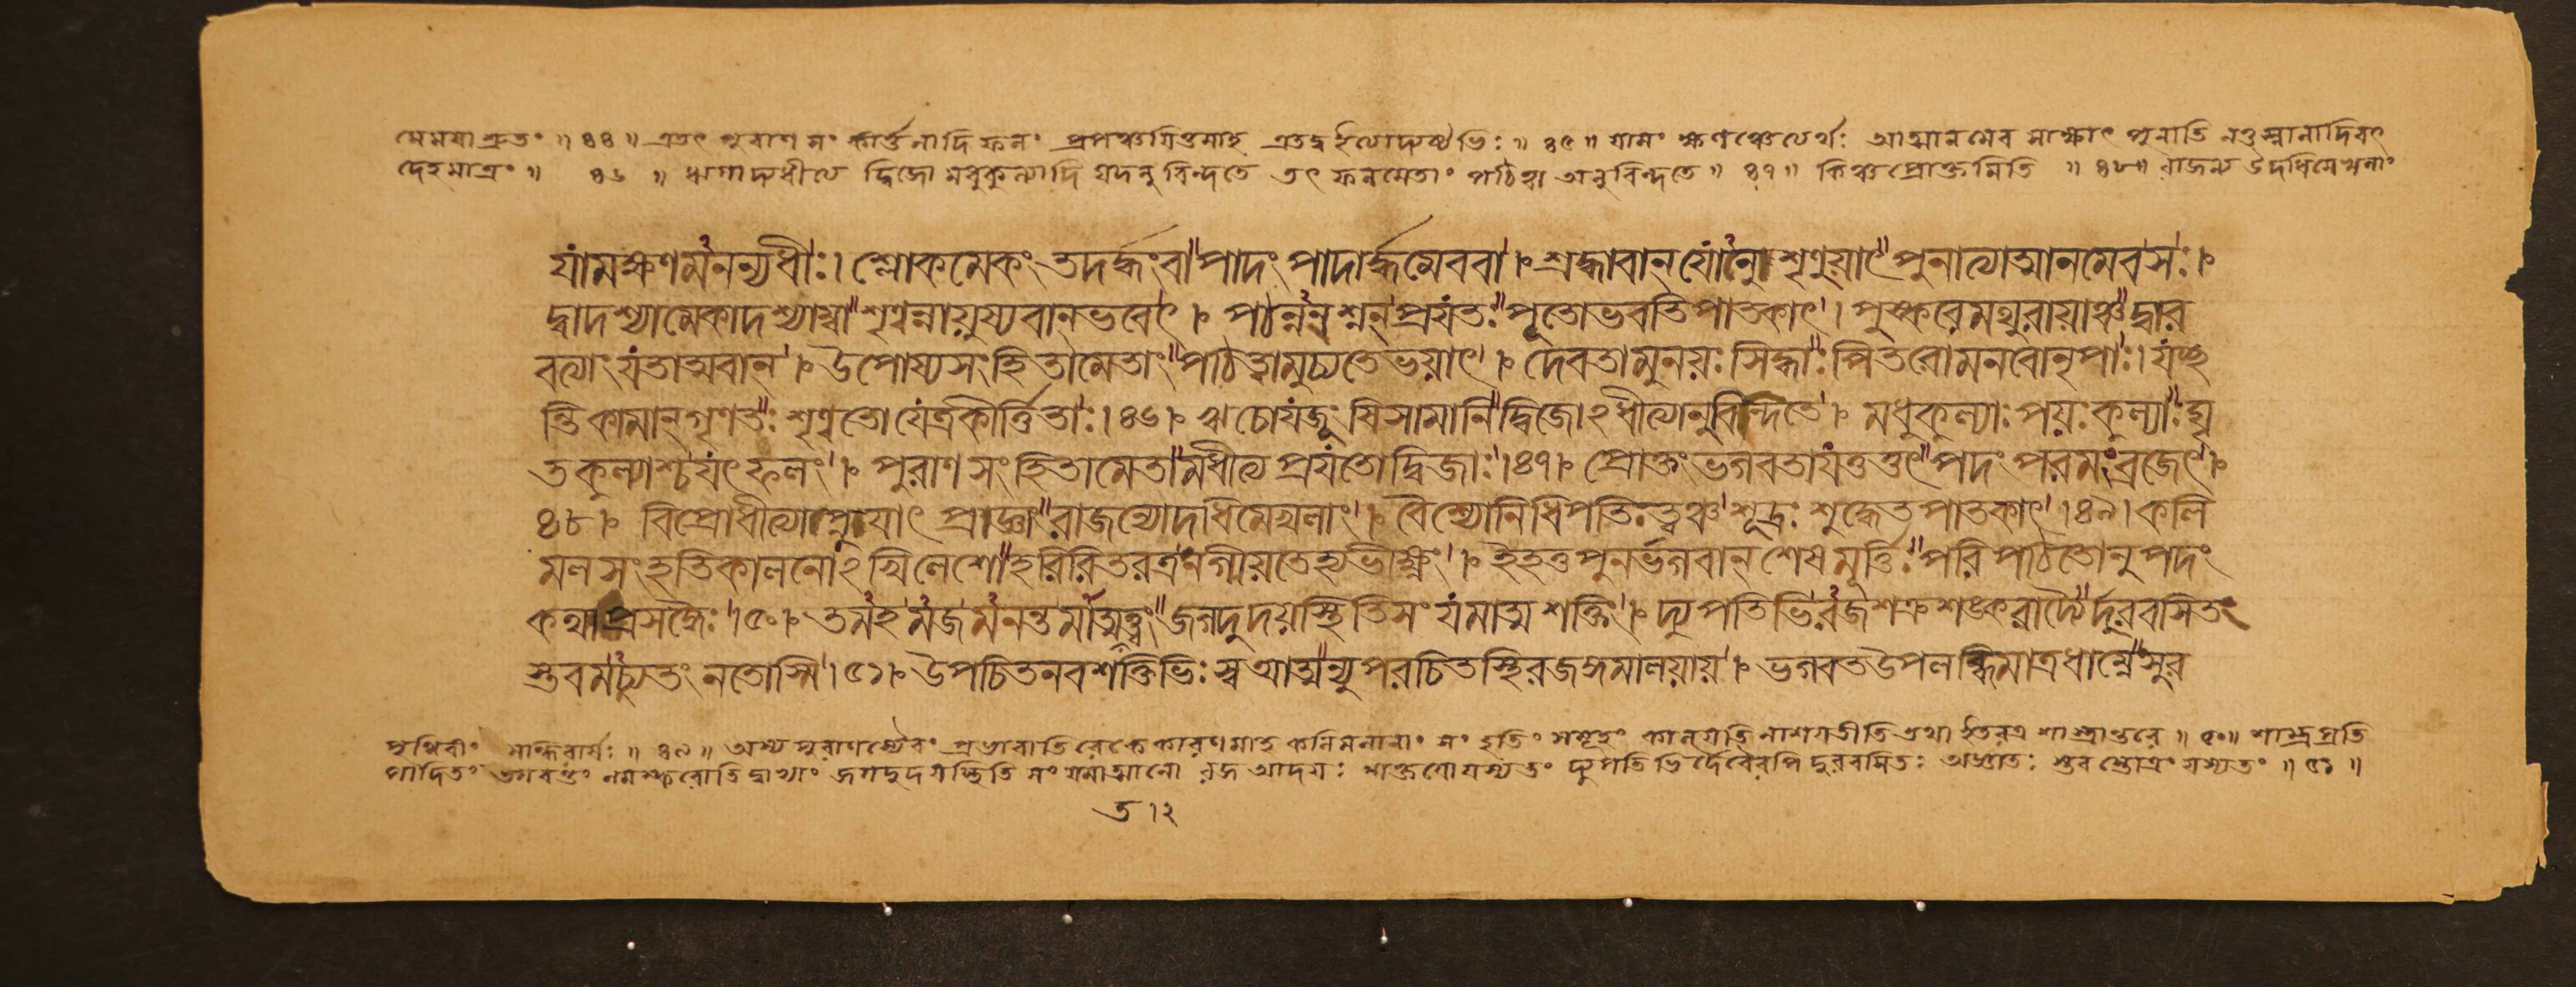 মেনময়াশ্রুতং ॥ ৪৪ ॥ এতৎ পুরাণ সং কীর্ত্তনাদি ফলং প্রপঞ্চয়িতুমাহ এতদ্বইত্যাদ্যষ্টভিঃ ॥ ৪৫ ॥ যামং ক্ষণঞ্চেত্যর্থঃ আত্মানমেব সাক্ষাৎ পুনাতি নতুস্নানাদিবৎ
দেহমাত্রং ॥ ৪৬ ॥ ঋগাদ্যধীত্য দ্বিজো মধুকুল্যাদি যদনু বিন্দতে তৎ ফলমেতাং পঠিত্বা অনুবিন্দতে ॥ ৪৭ ॥ কিঞ্চপ্রোক্তমিতি ॥ ৪৮ ॥ রাজন্য উদধিমেখলাং
যামক্ষণমনন্যধীঃ। শ্লোকমেকং তদর্দ্ধংবা পাদং পাদার্দ্ধমেববা । শ্রদ্ধাবান্ যোনু শৃণুয়াৎ পুনাত্যাত্মানমেবসঃ।
দ্বাদশ্যামেকাদশ্যাম্বা শৃণ্বন্নায়ুষ্যবান্ভবেৎ । পঠন্ননশ্নন্ প্রযতঃ পূতোভবতিপাতকাৎ । পুষ্করেমথুরায়াঞ্চ দ্বার
বত্যাং যতাত্মবান্ । উপোষ্যসংহিতামেতাং পঠিত্বামুচ্যতেভয়াৎ । দেবতামুনয়ঃ সিদ্ধাঃ পিতরোমনবোনৃপাঃ। যচ্ছ
ন্তি কামান্ গৃণতঃ শৃণ্বতো যেত্রকীর্ত্তিতাঃ। ৪৬। ঋচোযজূংষিসামানি দ্বিজোঽধীত্যানুবিন্দতে । মধুকুল্যাঃ পয়ঃ কুল্যাঃ ঘৃ
ত কুল্যাশ্চ যৎ ফলং । পুরাণ সংহিতামেতামধীত্য প্রযতোদ্বিজাঃ।৪৭। প্রোক্তং ভগবতাযত্তুতৎ পদং পরমংব্রজেৎ ।
৪৮। বিপ্রোধীত্যাপ্নুয়াৎ প্রাজ্ঞাং রাজন্যোদধিমেখলাং । বৈশ্যোনিধিপতিত্বঞ্চ শূদ্রঃ শুদ্ধেত পাতকাৎ ।৪৯। কলি
মলসংহতিকালনোঽখিলেশো হরিরিতরত্র নগীয়তেহ্যভীক্ষ্ণং । ইহতুপুনর্ভগবান্ শেষমূর্ত্তিঃ পরিপঠিতোনুপদং
কথাপ্রসঙ্গৈঃ।৫০। তমহমজমনন্তমাত্মতত্ত্বং জগদুদয়স্থিতিসংযমাত্মশক্তিং । দ্যুপতিভিরজশক্রশঙ্করাদ্যৈর্দুরবসিত
স্তবমচ্যুতং নতোস্মি । ৫১। উপচিতনবশক্তিভিঃ স্ব আত্মন্যুপরচিতস্থিরজঙ্গমালয়ায় । ভগবতউপলব্ধিমাত্রধাম্নে সুর
পৃথিবীং সান্ধিরার্যঃ ॥ ৪৯ ॥ অস্য পুরাণস্যৈবং প্রভাবাতিরেকে কারণমাহ কলিমলানাং সংহতিং সমূহং কালয়তি নাশয়তীতি তথা ইতরত্র শাস্ত্রান্তরে ॥ ৫০॥ শাস্ত্রপ্রতি
পাদিতং ভগবন্তং নমস্করোতি দ্বাভ্যাং জগদুদয়স্থিতি সং যমাত্মানো রজ আদয়ঃ শক্তয়োযস্যতং দ্যুপতিভির্দেবৈরপি দুরবসিতঃ অজ্ঞাতঃ স্তব স্তোত্রং যস্যতং ॥ ৫১ ॥
ত।২